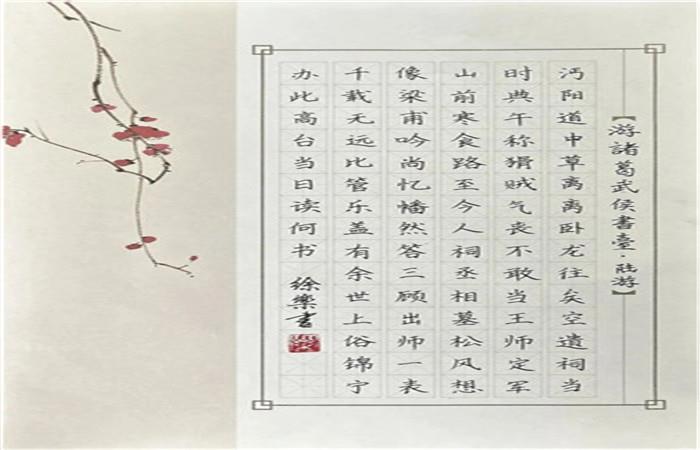 【游諸葛武侯書臺·陆游】
沔阳道中草离离卧龙往矣空遗祠当
时典午称猾贼气丧不敢当王师定军
山前寒食路至今人祠丞相墓松风想
像梁甫吟尚忆幡然答三顾出师一表
千载无远比管乐盖有余世上俗锦宁
办此高台当日读何书 徐樂書